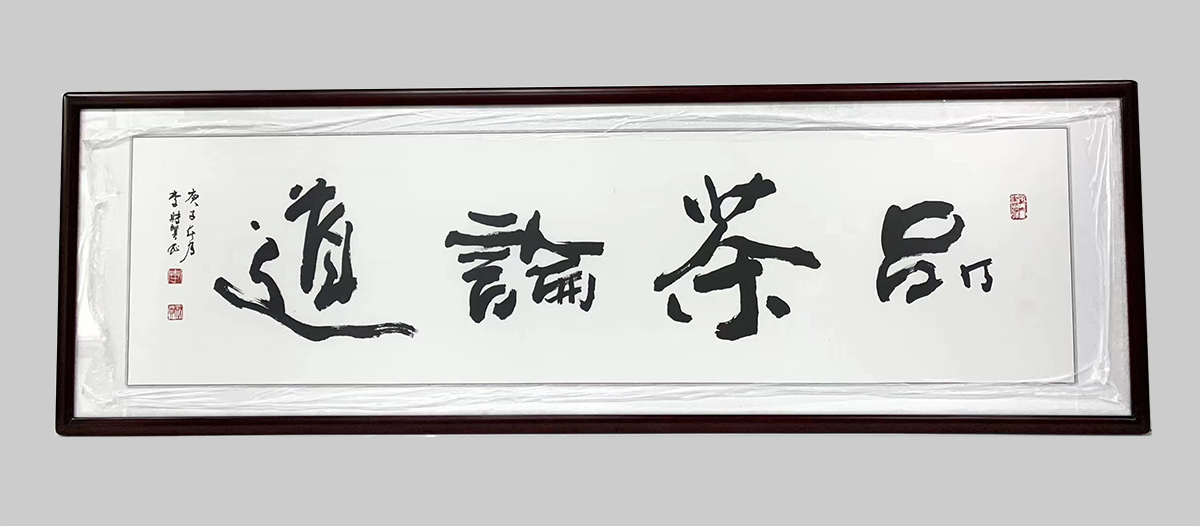 品茶論道
庚子年月
李時